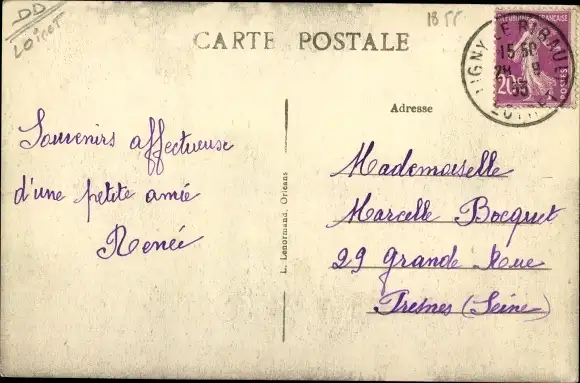 DD
Loiret
1855
CARTE POSTALE
RÉPUBLIQUE FRANÇAISE
20c
POSTES
LIGNY LE RIBAULT
15 50
28 9
35
LOIRET
Adresse
Souvenirs affectueuse
d'une petite amie
Renée
L. Lenormand, Orléans
Mademoiselle
Marcelle Bocquet
29 Grande Rue
Fresnes (Seine)